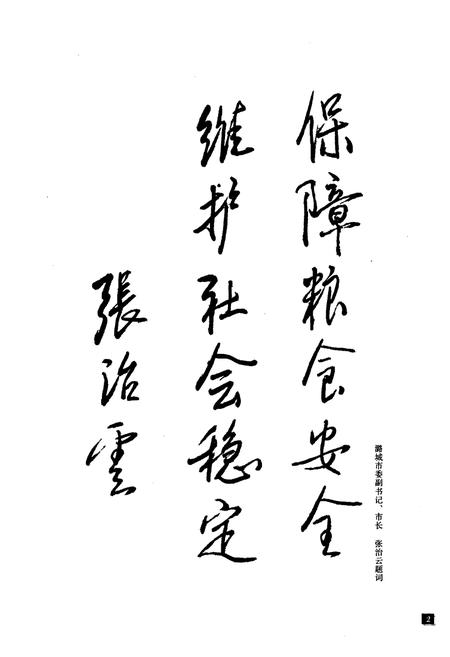 保障粮食安全
维护社会稳定
張治雲
潞城市委副书记、市长 张治云题词
2